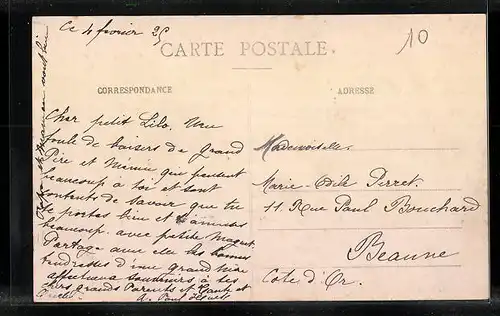 Ce 4 février 25
10
CARTE POSTALE
CORRESPONDANCE
ADRESSE
Cher petit Lilo, Une
foule de baisers de Grand
Père et Mémée qui pensent
beaucoup à toi et sont
contents de savoir que tu
te portes bien et t'amuses
beaucoup avec petite
Partage avec elle les bonnes
tendresses d'une grand mère
affectueux souvenirs à tes
chers grands Parents et Tante et
Oncle
A. Paul
Papa et Maman sont bien
Mademoiselle
Marie-Odile Perret
11 Rue Paul Bouchard
Beaune
Cote d'Or.